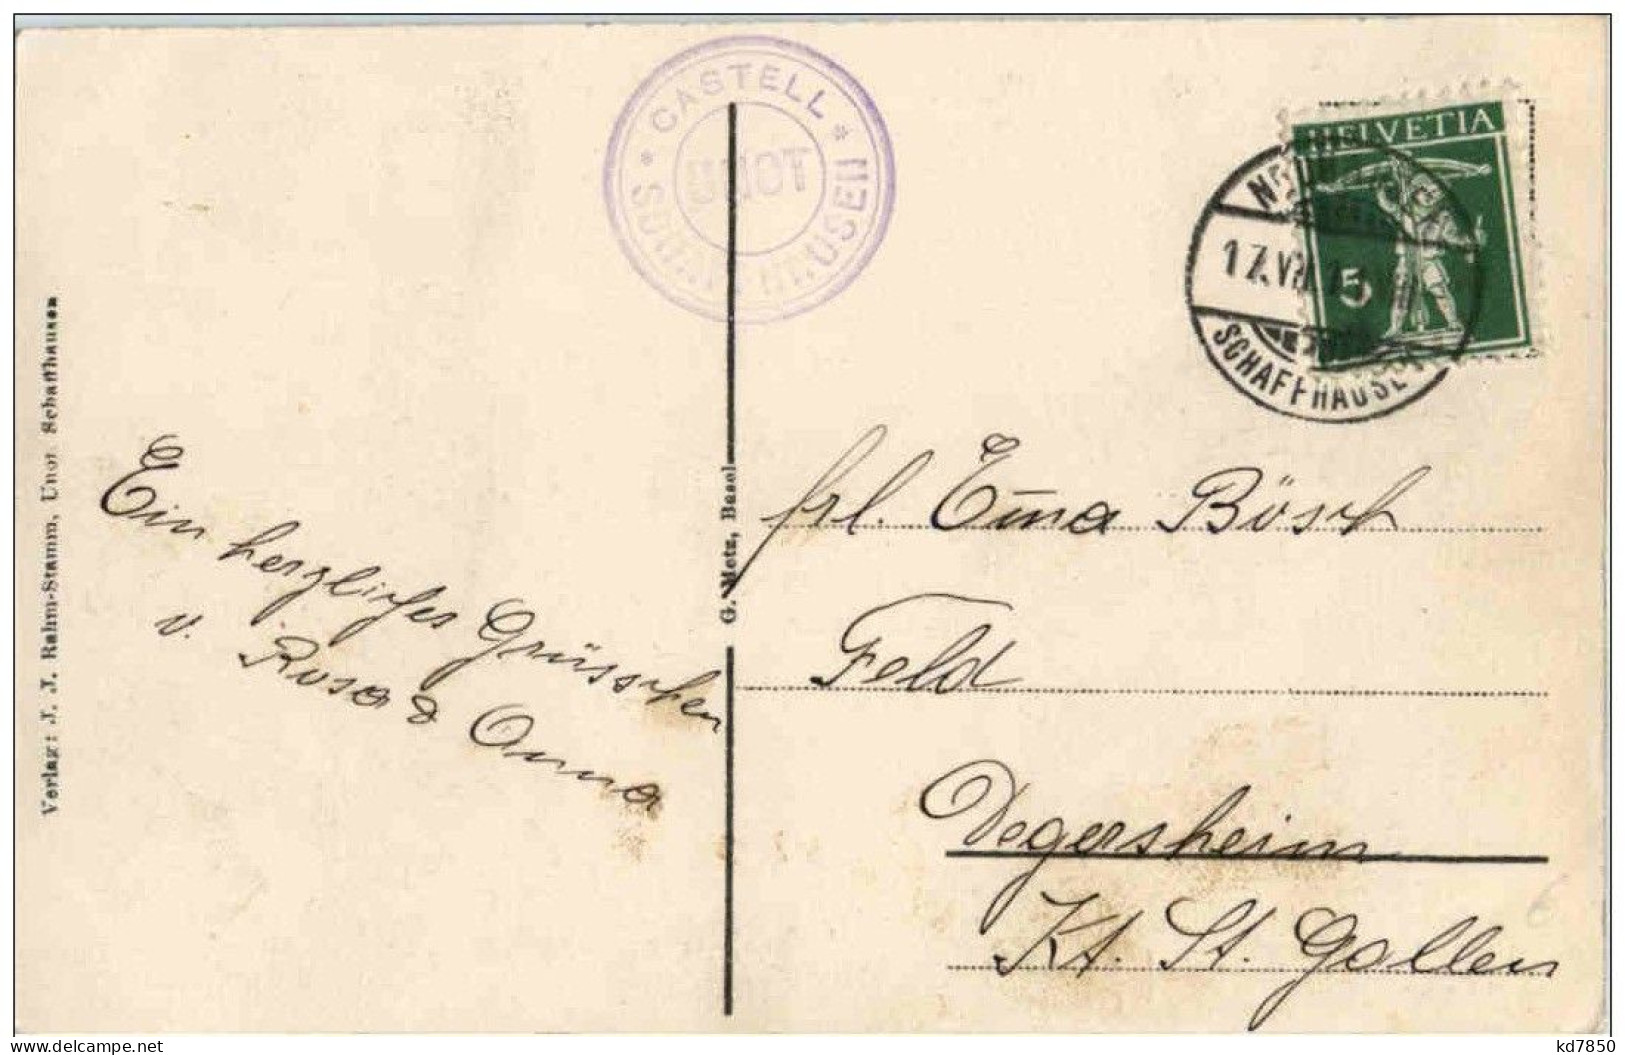 Verlag: J. J. Rahm-Stamm, Unot Schaffhausen
Ein herzliches Grüsschen
v. Rosa & Anna
G. Metz, Basel
* CASTELL *
UNOT
SCHAFFHAUSEN
HELVETIA
5
17.VII
SCHAFFHAUSEN
frl. Ema Bösch
Feld
Degersheim
Kt. St. Gallen
6
www.delcampe.net
kd7850